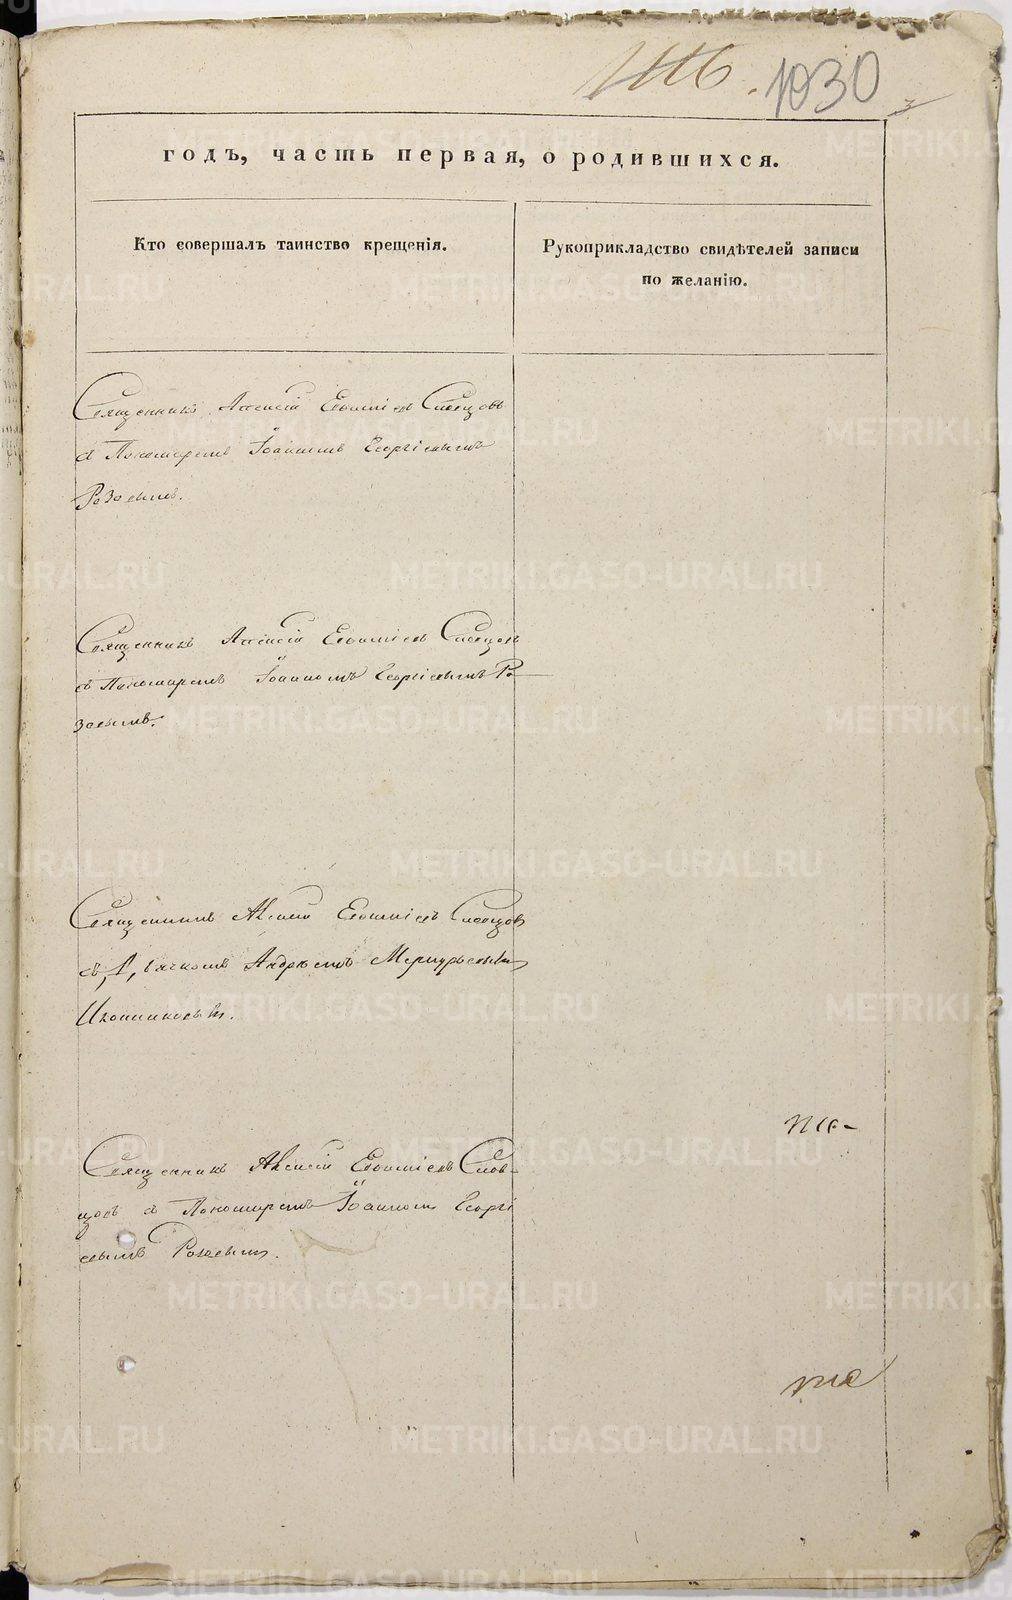 1030
годъ, часть первая, о родившихся.
Кто совершалъ таинство крещенія.
Рукоприкладство свидѣтелей записи
по желанію.
Священникъ Алексій Евфиміевъ Словцовъ
съ Пономаремъ Іоанномъ Георгіевымъ
Розовымъ.
Священникъ Алексій Евфиміевъ Словцовъ
съ Пономаремъ Іоанномъ Георгіевымъ Ро-
зовымъ.
Священникъ Алексій Евфиміевъ Словцовъ
съ Дьячкомъ Андреемъ Меркурьевымъ
Иконниковымъ.
Священникъ Алексій Евфиміевъ Слов-
цовъ съ Пономаремъ Іоанномъ Георгі
евымъ Розовымъ.
METRIKI.GASO-URAL.RU